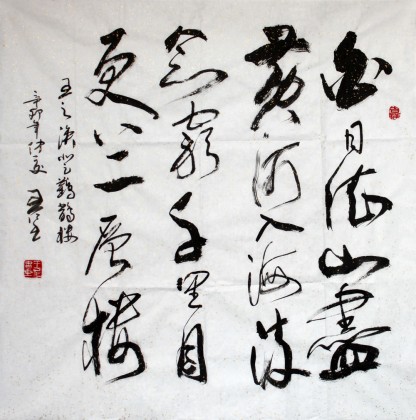 白日依山盡
黄河入海流
欲窮千里目
更上一层樓
王之涣登鸛鵲樓
辛卯年仲夏 王